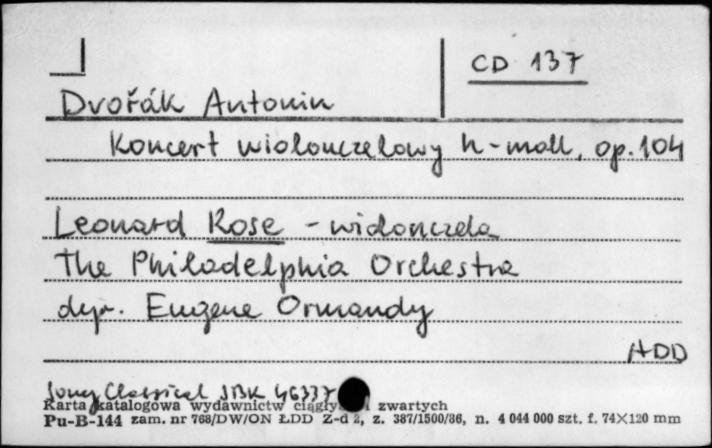 CD 137
Dvořák Antonin
Koncert wiolonczelowy h-moll, op. 104
Leonard Rose - wiolonczela
The Philadelphia Orchestra
dyr. Eugene Ormandy
ADD
Sony Classical SBK 46337
Karta katalogowa wydawnictw ciągły i zwartych
Pu-B-144 zam. nr 768/DW/ON ŁDD Z-d 2, z. 387/1500/86, n. 4 044 000 szt. f. 74×120 mm